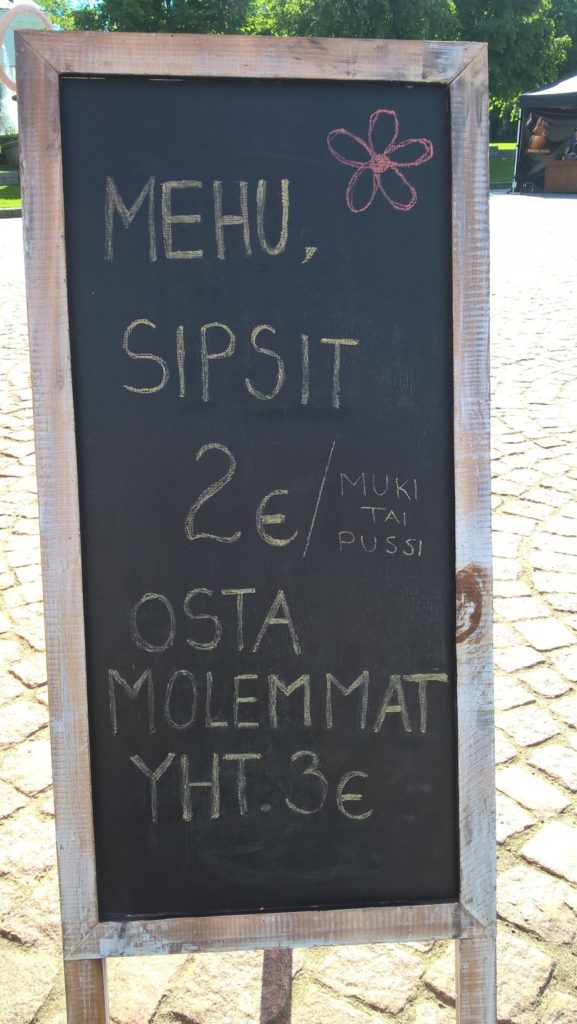 MEHU,
SIPSIT
2€/ MUKI
TAI
PUSSI
OSTA
MOLEMMAT
YHT. 3€